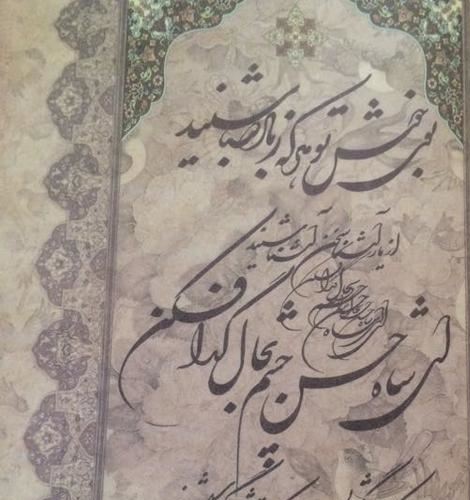 بوی خوش تو هر که ز باد صبا شنید
از یار آشنا سخن آشنا شنید
ای شاه حسن چشم بحال گدا فکن